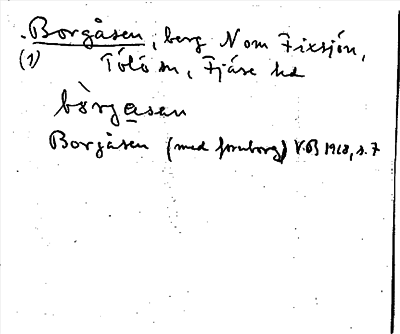 Borgåsen, berg N om Fixsjön,
(1) Tölö sn, Fjäre hd
bòrgasan
Borgåsen (med fornborg) VB 1968, s. 7